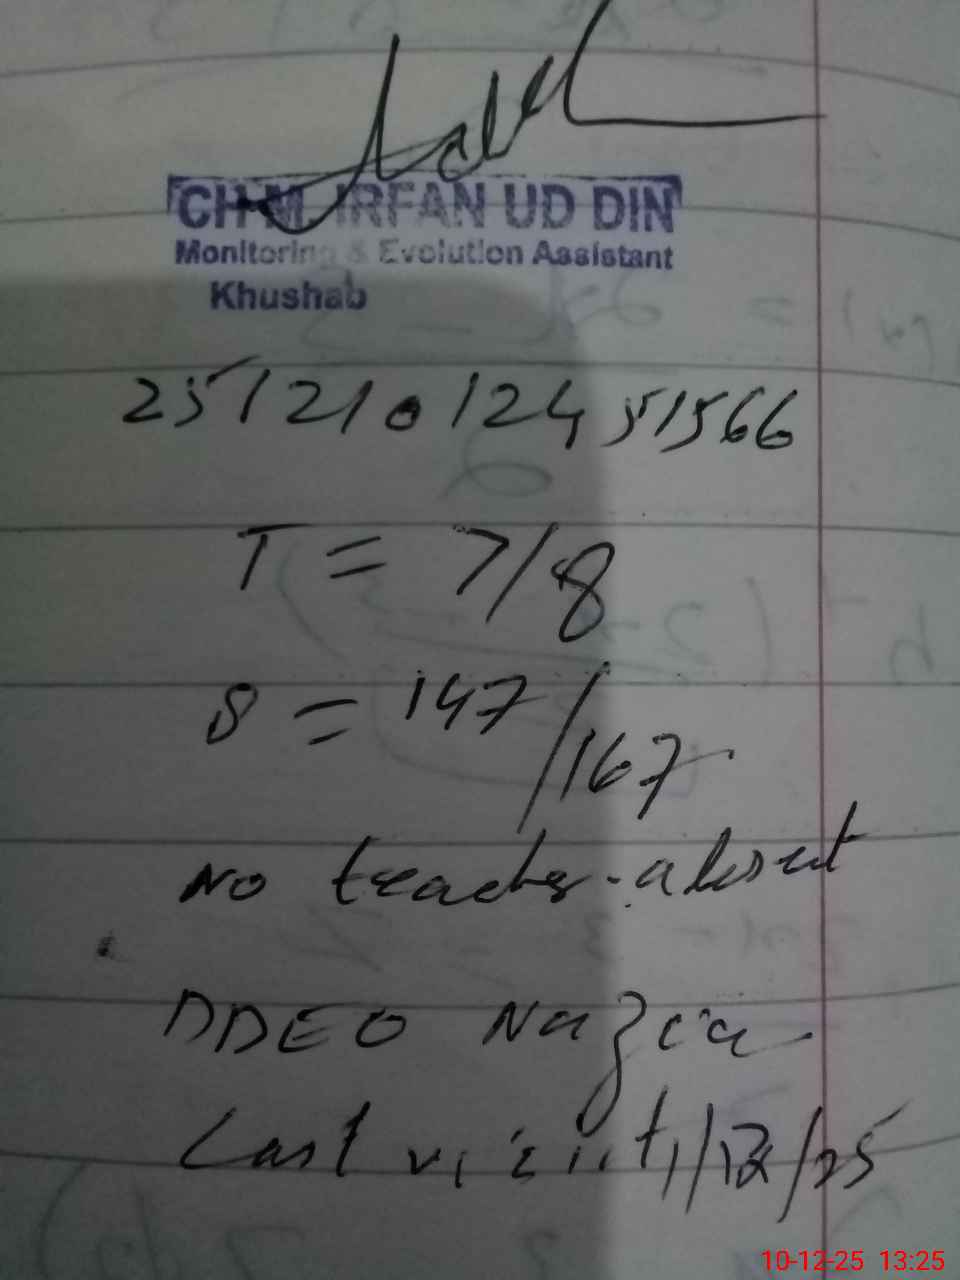 CH M. IRFAN UD DIN
Monitoring & Evolution Assistant
Khushab
25121012451566
T = 7/8
S = 147/167
No teacher absent
DDEO Nazia
Last visit 1/12/25
10-12-25 13:25